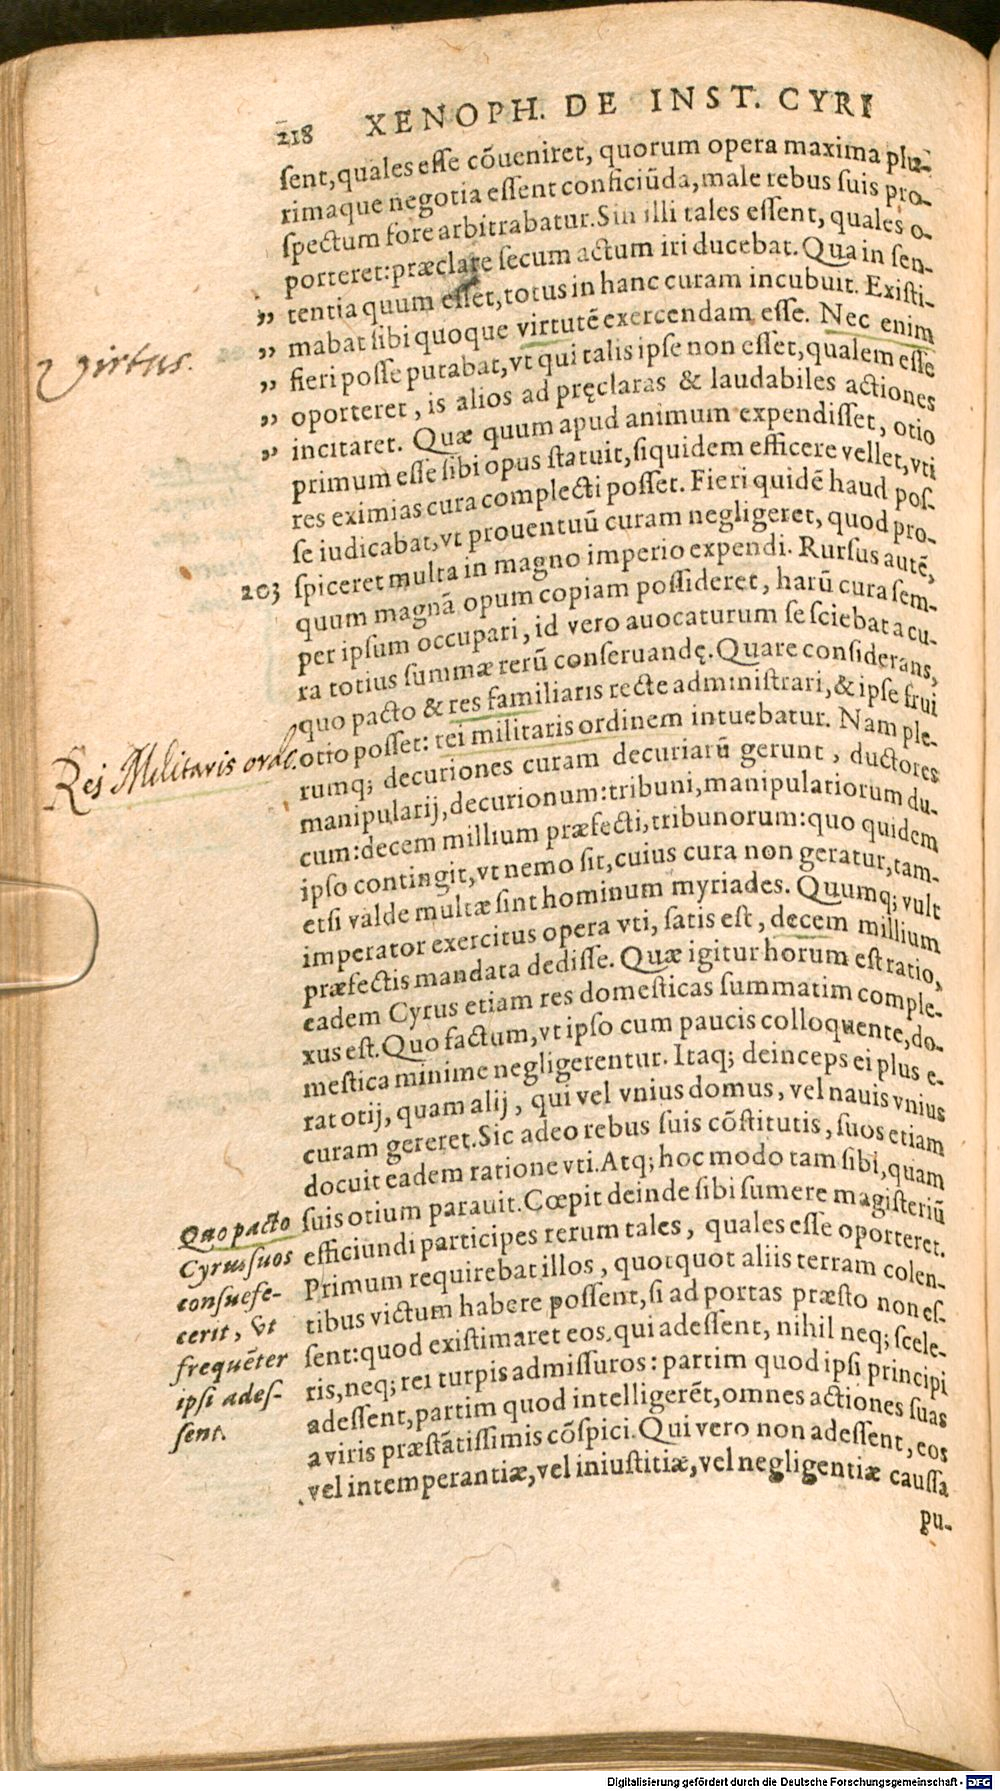 218 XENOPH. DE INST. CYRI
sent, quales esse cõueniret, quorum opera maxima plu-
rimaque negotia essent conficiũda, male rebus suis pro-
spectum fore arbitrabatur. Sin illi tales essent, quales o-
porteret: præclare secum actum iri ducebat. Qua in sen-
„ tentia quum esset, totus in hanc curam incubuit. Existi-
„ mabat sibi quoque virtutẽ exercendam esse. Nec enim
Virtus.
„ fieri posse putabat, vt qui talis ipse non esset, qualem esse
„ oporteret, is alios ad pręclaras & laudabiles actiones
„ incitaret. Quæ quum apud animum expendisset, otio
primum esse sibi opus statuit, siquidem efficere vellet, vti
res eximias cura complecti posset. Fieri quidẽ haud pos-
se iudicabat, vt prouentuũ curam negligeret, quod pro-
203 spiceret multa in magno imperio expendi. Rursus autẽ,
quum magnã opum copiam possideret, harũ cura sem-
per ipsum occupari, id vero auocaturum se sciebat a cu-
ra totius summæ rerũ conseruandę. Quare considerans,
quo pacto & res familiaris recte administrari, & ipse frui
Rei Militaris ordo.
otio posset: rei militaris ordinem intuebatur. Nam ple-
rumq; decuriones curam decuriarũ gerunt, ductores
manipularij, decurionum: tribuni, manipulariorum du-
cum: decem millium præfecti, tribunorum: quo quidem
ipso contingit, vt nemo sit, cuius cura non geratur, tam-
etsi valde multæ sint hominum myriades. Quumq; vult
imperator exercitus opera vti, satis est, decem millium
præfectis mandata dedisse. Quæ igitur horum est ratio,
eadem Cyrus etiam res domesticas summatim comple-
xus est. Quo factum, vt ipso cum paucis colloquente, do-
mestica minime negligerentur. Itaq; deinceps ei plus e-
rat otij, quam alij, qui vel vnius domus, vel nauis vnius
curam gereret. Sic adeo rebus suis cõstitutis, suos etiam
docuit eadem ratione vti. Atq; hoc modo tam sibi, quam
suis otium parauit. Cœpit deinde sibi sumere magisteriũ
efficiundi participes rerum tales, quales esse oporteret.
Primum requirebat illos, quotquot aliis terram colen-
tibus victum habere possent, si ad portas præsto non es-
sent: quod existimaret eos, qui adessent, nihil neq; scele-
ris, neq; rei turpis admissuros: partim quod ipsi principi
adessent, partim quod intelligerẽt, omnes actiones suas
a viris præstãtissimis cõspici. Qui vero non adessent, eos
vel intemperantiæ, vel iniustitiæ, vel negligentiæ caussa
pu-
Quo pacto
Cyrus suos
consuefe-
cerit, vt
frequẽter
ipsi ades-
sent.
Digitalisierung gefördert durch die Deutsche Forschungsgemeinschaft - DFG